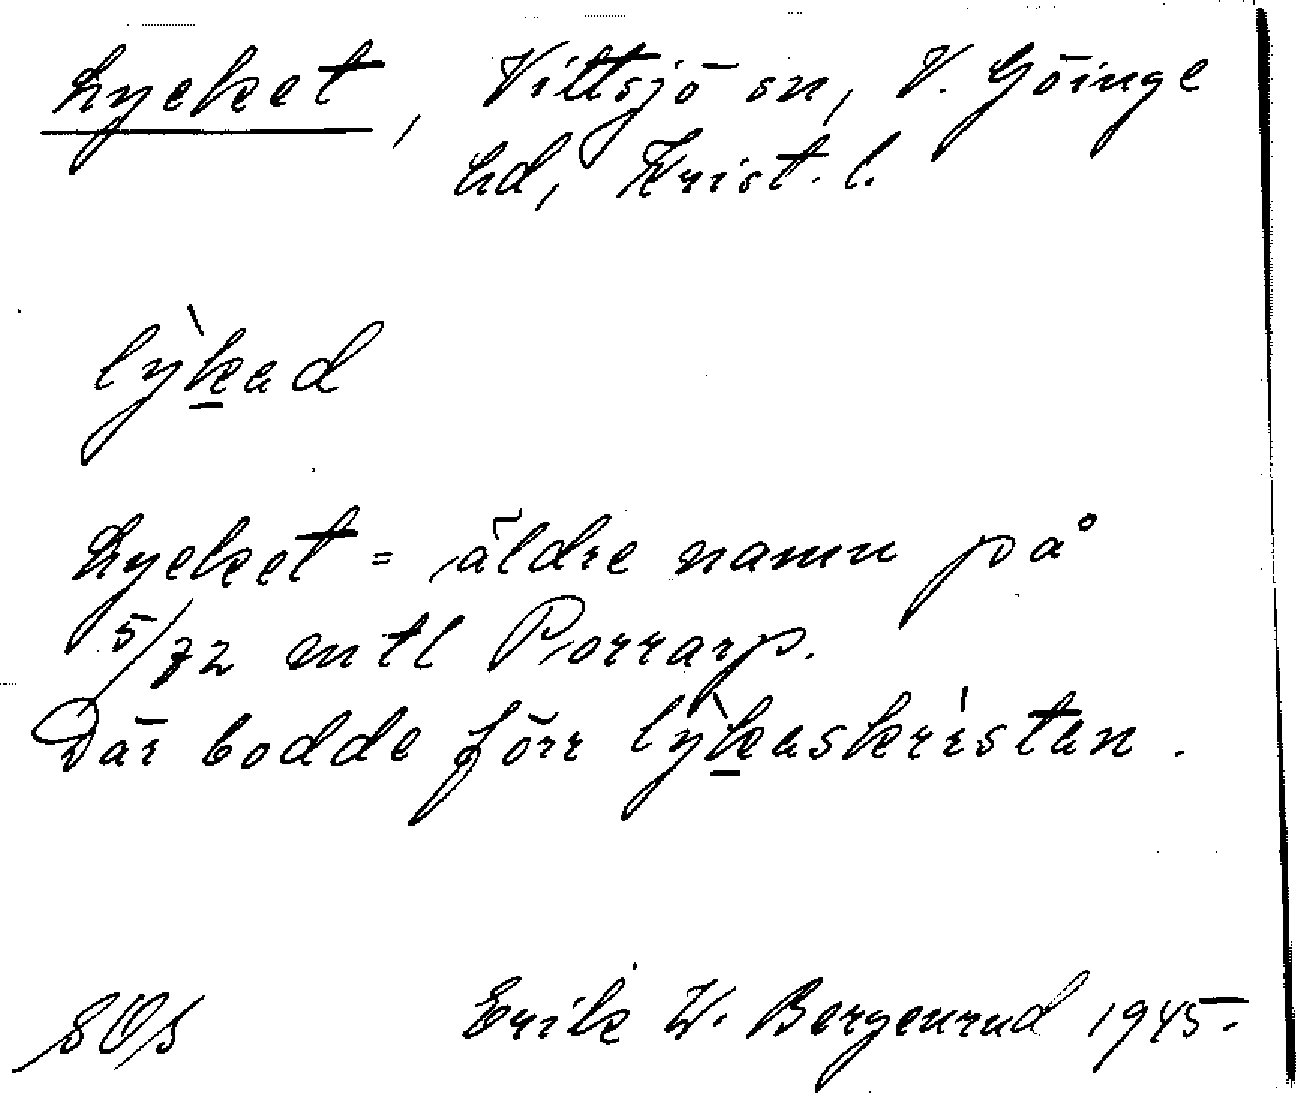 Lycket, Vittsjö sn, V. Göinge
hd, Krist. l.
lỳkad
Lycket = äldre namn på
5/72 mtl Porrarp.
Där bodde förr lỳkaskristan.
Erik W. Bergenrud 1945.